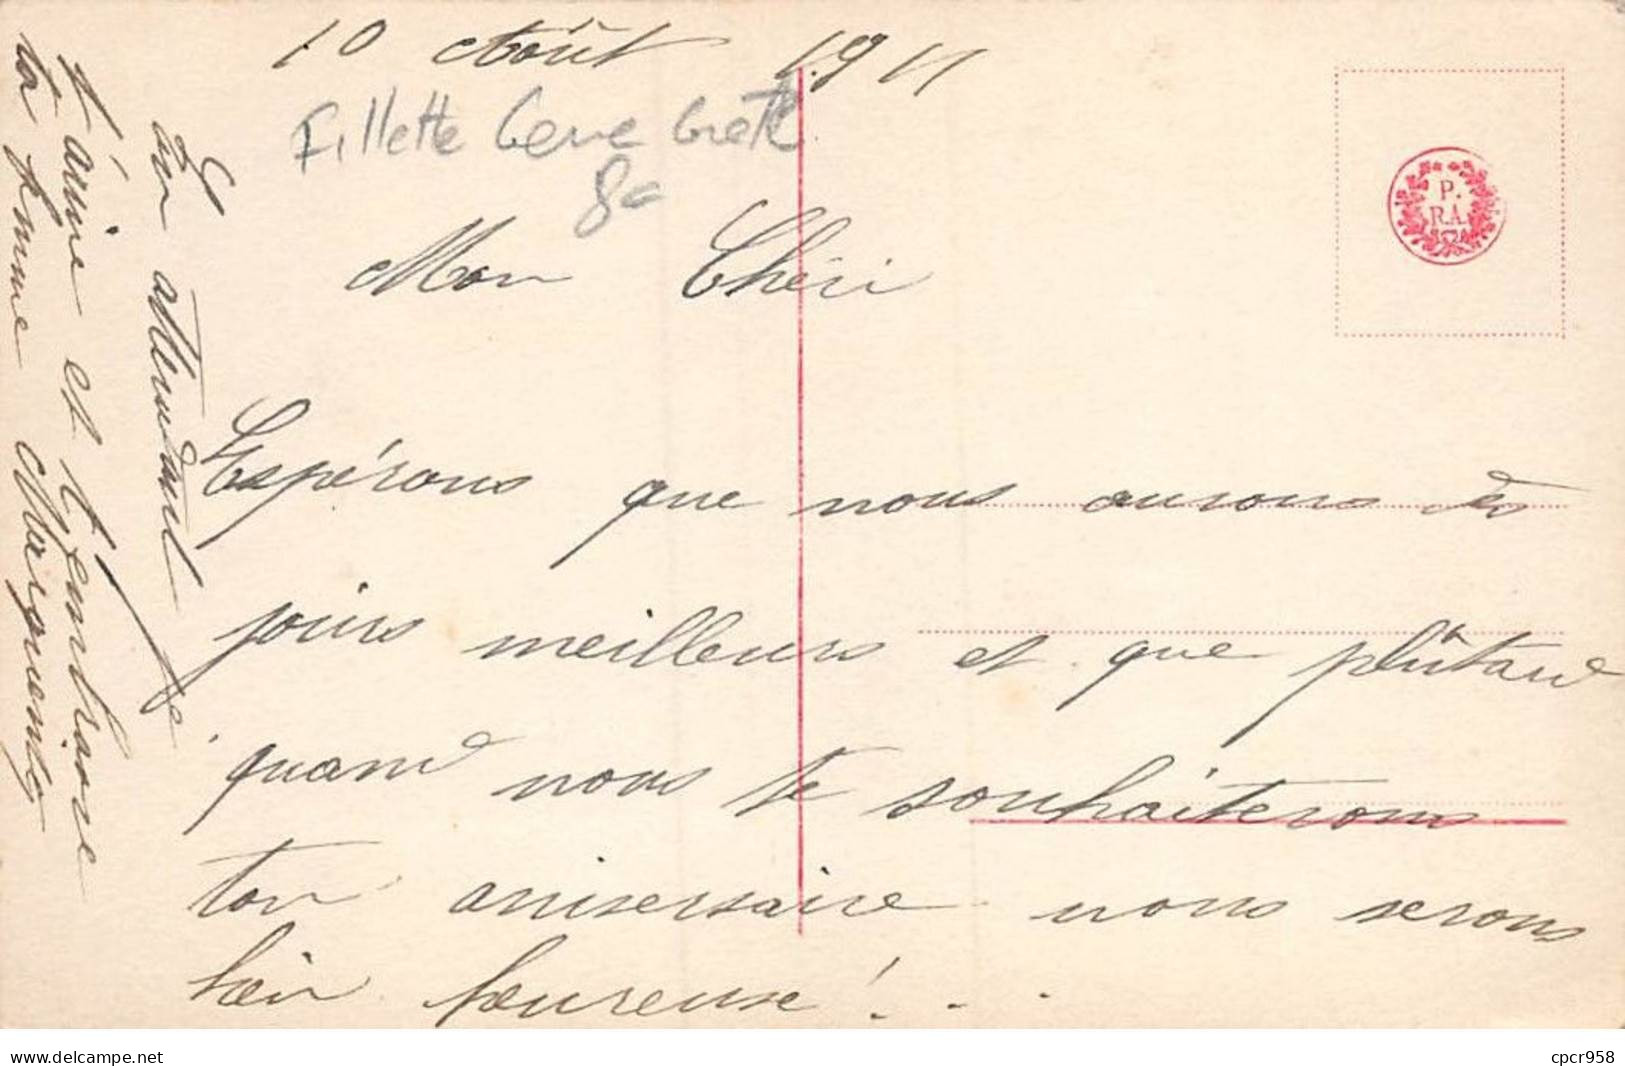 10 Août 1911
Fillette Genre Greth
8€
P.
R.A.
Mon Chéri
Espérons que nous aurons des
jours meilleurs et que plûtard
quand nous te souhaiterons
ton aniversaire nous serons
bien heureuse!...
En attendant je
t'aime et t'embrasse
ta femme Marguerite
www.delcampe.net
cpcr958